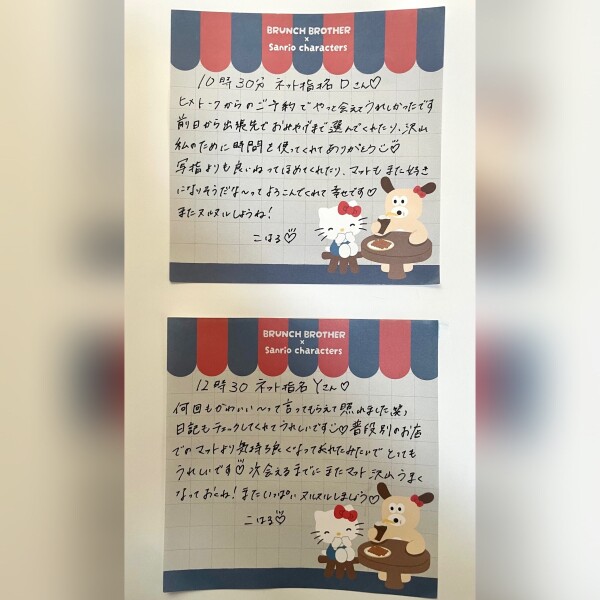 BRUNCH BROTHER
×
Sanrio characters
10時30分 ネット指名 Dさん♡
ヒメトークからのご予約でやっと会えてうれしかったです
前日から出張先でおみやげまで選んでくれたり、沢山
私のために時間を使ってくれてありがとう♡
写指よりも良いねってほめてくれたり、マットもまた好き
になりそうだな〜ってよろこんでくれて幸せです♡
またヌルヌルしようね!
こはる♡
BRUNCH BROTHER
×
Sanrio characters
12時30 ネット指名 Yさん♡
何回もかわいい〜って言ってもらえて照れました笑、
日記もチェックしてくれてうれしいです♡普段別のお店
でのマットより気持ち良くなってくれたみたいでとっても
うれしいです♡次会えるまでにまたマット沢山うまく
なっておくね!またいっぱいヌルヌルしましょう♡
こはる♡